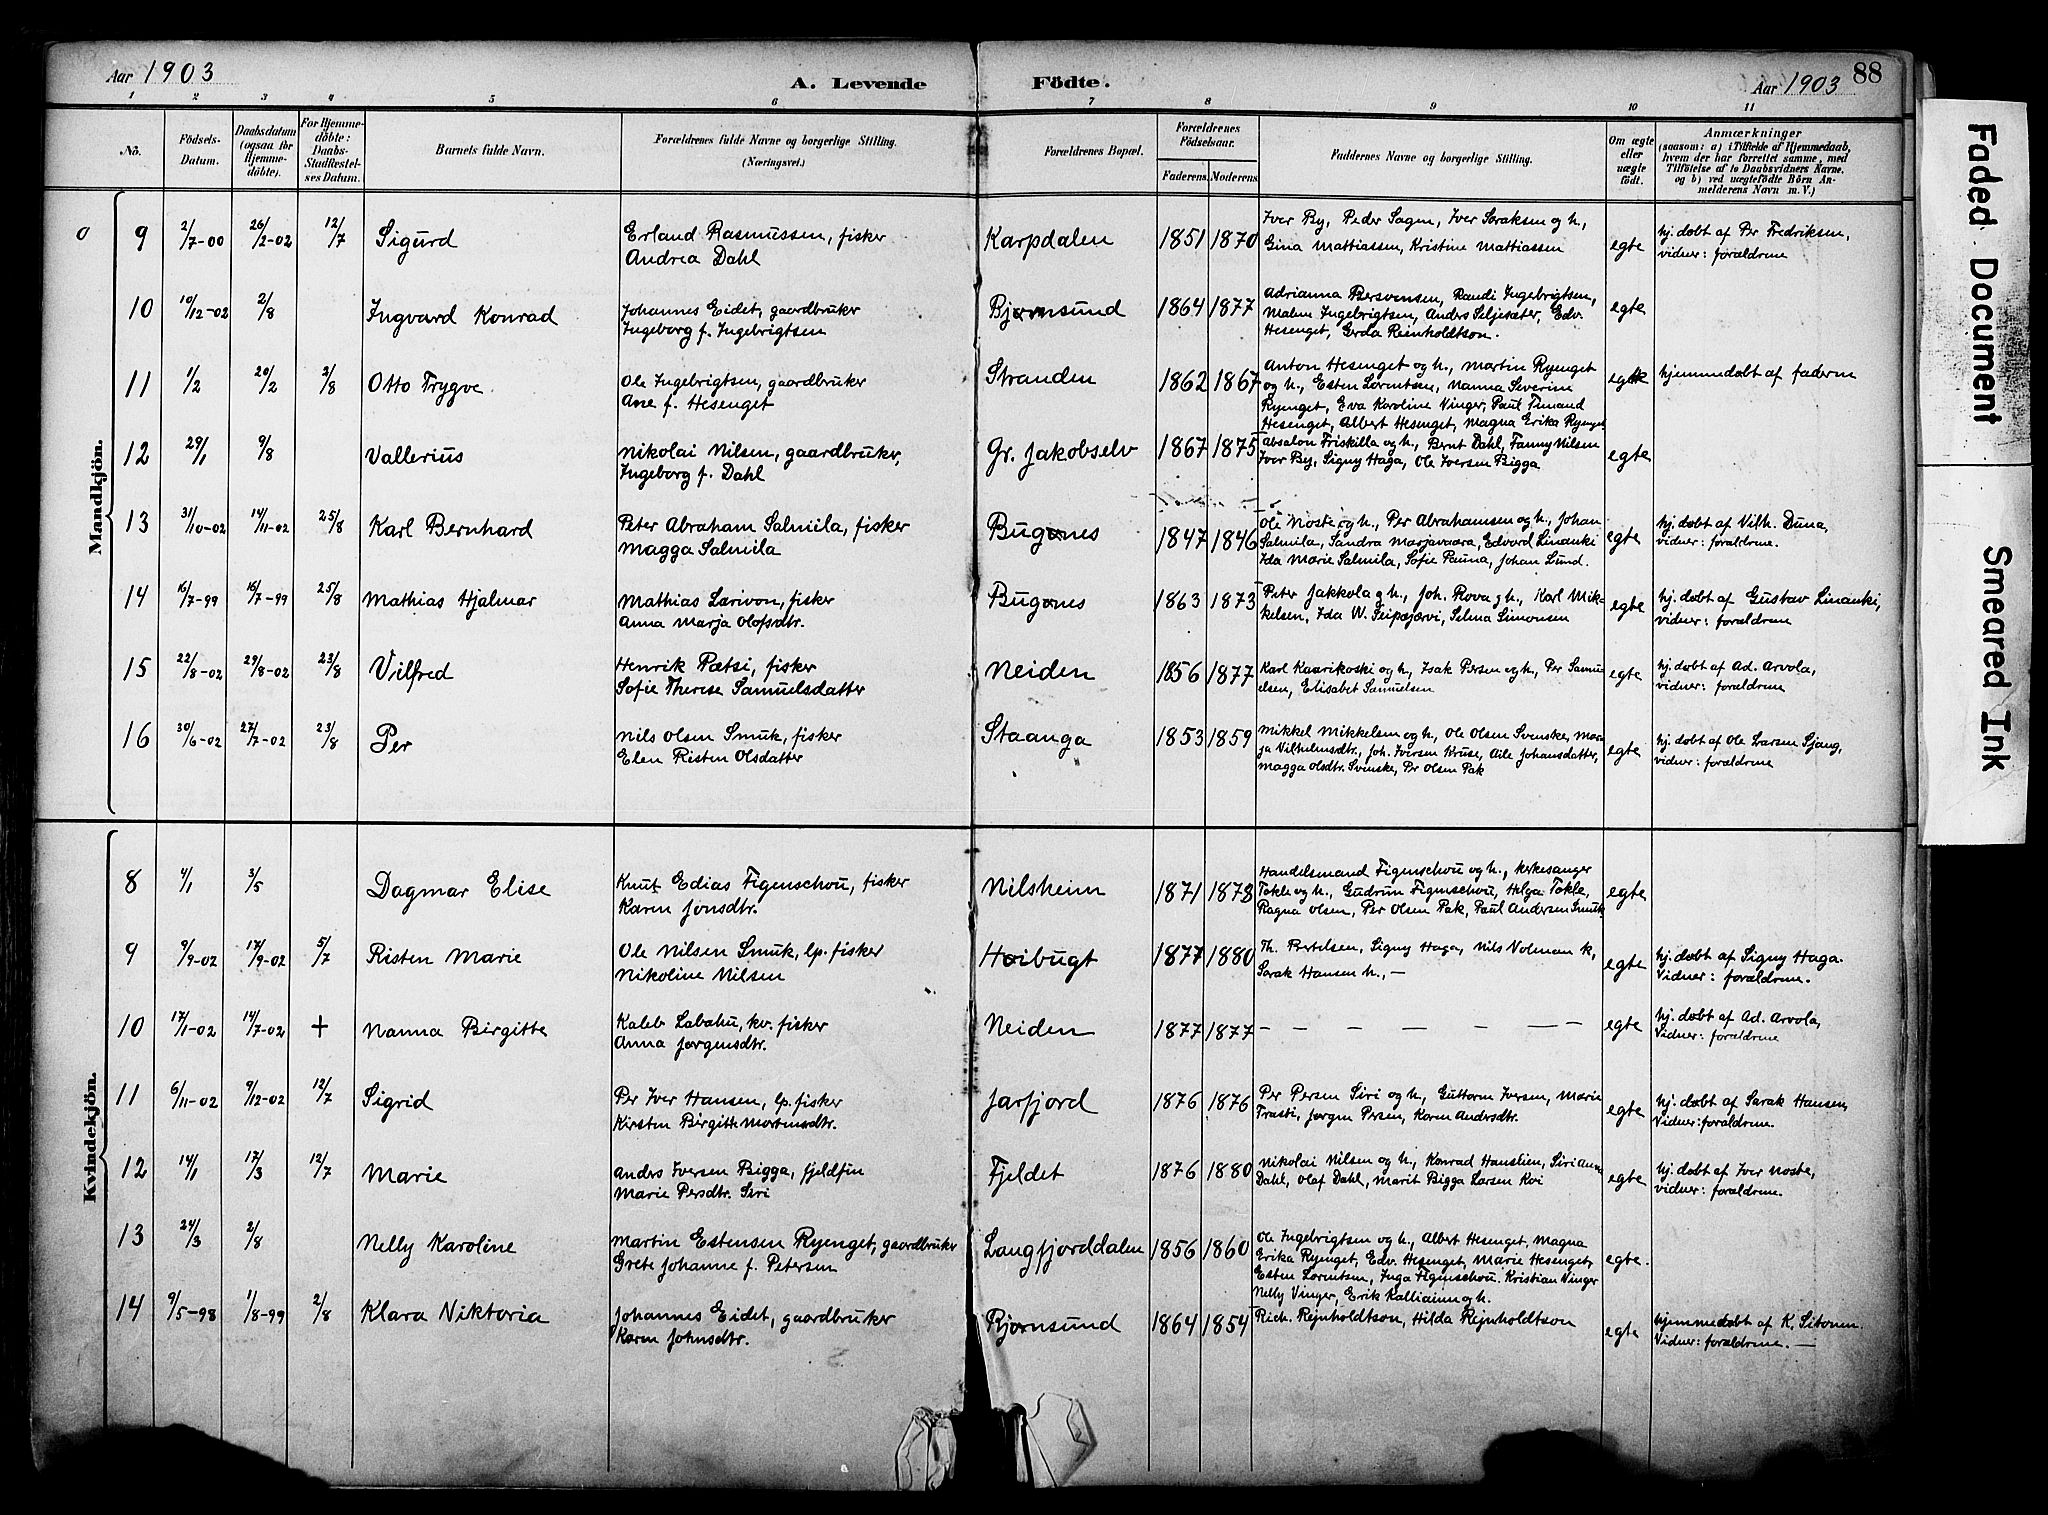 Aar 1903
A. Levende Födte.
Aar 1903
88
1 2 3 4 5 6 7 8 9 10 11
No. Födsels-Datum. Daabsdatum (ogsaa for Hjemme-döbte). For Hjemme-döbte: Daabs-Stadfæstel-ses Datum. Barnets fulde Navn. Forældrenes fulde Navne og borgerlige Stilling. (Næringsvei.) Forældrenes Bopæl. Forældrenes Födselsaar. Faderens. Moderens. Faddernes Navne og borgerlige Stilling. Om ægte eller uægte födt. Anmærkninger (saasom: a) i Tilfælde af Hjemmedaab, hvem der har forrettet samme, med Tilföielse af to Daabsvidners Navne, og b) ved uægtefödte Börn An-melderens Navn m. V.)
Mandkjön.
O 9 2/7-00 26/2-02 12/7 Sigurd Erland Rasmussen, fisker Karpdalen 1851 1870 Iver By, Peder Sagen, Iver Saraksen og h., egte hj. døbt af Per Fredriksen,
Andrea Dahl Gina Mattiassen, Kristine Mattiassen vidner: forældrene
10 10/12-02 2/8 Ingvard Konrad Johannes Eidet, gaardbruker Bjørnsund 1864 1877 Adrianna Bersvensen, Randi Ingebrigtsen, egte
Ingeborg f. Ingebrigtsen Malen Ingebrigtsen, Anders Seljesæter, Edv.
Hesenget, Gerda Reinholdtson.
11 1/2 20/2 2/8 Otto Trygve Ole Ingebrigtsen, gaardbruker Stranden 1862 1867 Anton Hesenget og h., Martin Ryenget egte hjemmedøbt af faderen
Ane f. Hesenget og h., Esten Lorentsen, Nanna Severine
Ryenget, Eva Karoline Vinger, Paul Fimand
Hesenget, Albert Hesenget, Magna Erika Ryenget
12 29/1 9/8 Vallerius Nikolai Nilsen, gaardbruker, Gr. Jakobselv 1867 1875 Absalon Friskilla og h., Bernt Dahl, Fanny Nilsen egte
Ingeborg f. Dahl Iver By, Signy Haga, Ole Iversen Bigga
13 31/10-02 14/11-02 25/8 Karl Bernhard Peter Abraham Salmila, fisker Bugønes 1847 1846 Ole Noste og h., Per Abrahamsen og h., Johan egte hj. døbt af Vilh. Duna,
Magga Salmila Salmila, Sandra Marjavaara, Edvard Linanki vidner: forældrene.
Ida Marie Salmila, Sofie Pauna, Johan Lund.
14 16/7-99 16/7-99 25/8 Mathias Hjalmar Mathias Larivon, fisker Bugønes 1863 1873 Peter Jakkola og h., Joh. Rova og h., Karl Mik- egte hj. døbt af Gustav Linanki,
Anna Marja Olofsdtr. kelsen, Ida W. Seipæjærvi, Selma Simonsen vidner: forældrene
15 22/8-02 29/8-02 23/8 Vilfred Henrik Pætsi, fisker Neiden 1856 1877 Karl Kaarikoski og h., Isak Persen og h., Per Samu- egte hj. døbt af Ad. Arvola,
Sofie Therese Samuelsdatter elsen, Elisabet Samuelsen vidner: forældrene
16 30/6-02 27/7-02 23/8 Per Nils Olsen Smuk, fisker Staanga 1853 1859 Mikkel Mikkelsen og h., Ole Olsen Svenske, Mar- egte hj. døbt af Ole Larsen Sjang,
Elen Risten Olsdatter ja Vilhelmsdtr., Joh. Iversen Kruse, Aile Johansdatter, vidner: forældrene
Magga Olsdtr. Svenske, Per Olsen Pak
Kvindekjön.
8 4/1 3/5 Dagmar Elise Knut Edias Figenschou, fisker Nilsheim 1871 1873 Handelsmand Figenschou og h., kirkesanger egte
Karen Jonsdtr. Tokle og h., Gudrun Figenschou, Helga Tokle,
Ragna Olsen, Per Olsen Pak, Paul Andersen Smuk
9 9/9-02 17/9-02 5/7 Risten Marie Ole Nilsen Smuk, lp. fisker Høibugt 1877 1880 Th. Bertelsen, Signy Haga, Nils Nolman k, egte hj. døbt af Signy Haga.
Nikoline Nilsen Sarak Hansen h., — Vidner: forældrene.
10 17/1-02 14/7-02 + Nanna Birgitte Kaleb Labahu, kv. fisker Neiden 1877 1877 — — — — — — — egte hj. døbt af Ad. Arvola,
Anna Jørgensdtr. Vidner: forældrene
11 6/11-02 9/12-02 12/7 Sigrid Per Iver Hansen, lp. fisker Jarfjord 1876 1876 Per Persen Siri og h., Guttorm Iversen, Marie egte hj. døbt af Sarak Hansen,
Kirsten Birgitte Mortensdtr. Trasti, Jørgen Persen, Karen Andersdtr. Vidner: forældrene.
12 14/1 17/3 12/7 Marie Anders Iversen Bigga, fjeldfin Fjeldet 1876 1880 Nikolai Nilsen og h., Konrad Hanstien, Siri Anna egte hj. døbt af Iver Noste,
Marie Persdtr. Siri Dahl, Olaf Dahl, Marit Bigga Larsen Koi vidner: forældrene.
13 24/3 2/8 Nelly Karoline Martin Estensen Ryenget, gaardbruker Langfjorddalen 1856 1860 Ole Ingebrigtsen og h., Albert Hesenget, Magna egte.
Grete Johanne f. Petersen Erika Ryenget, Edv. Hesenget, Marie Hesenget,
Esten Lorentsen, Inga Figenschou. Kristian Vinger
Nelly Vinger, Erik Kalliainn og h.
14 9/5-98 1/8-99 2/8 Klara Niktoria Johannes Eidet, gaardbruker Bjørnsund 1864 1854 Rich. Reinholdtson, Hilda Reinholdtson egte hjemmedøbt af K. Sitonen.
Karen Johnsdtr. Vidner: forældrene. —
Faded Document
Smeared Ink